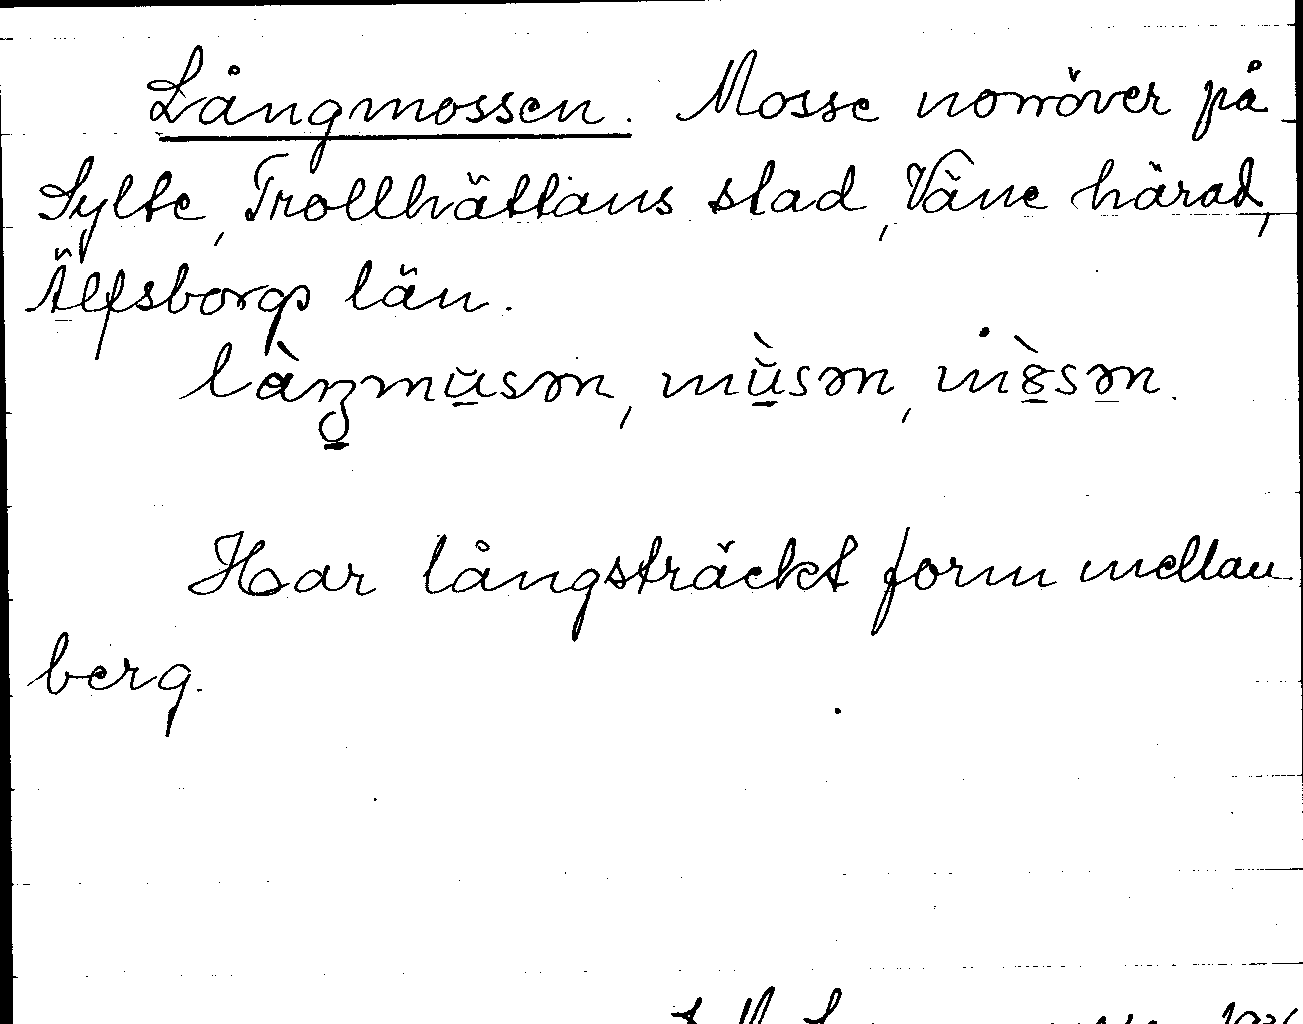 Långmossen. Mosse norröver på
Sylte, Trollhättans stad, Väne härad,
Älfsborgs län.
Har långsträckt form mellan
berg.